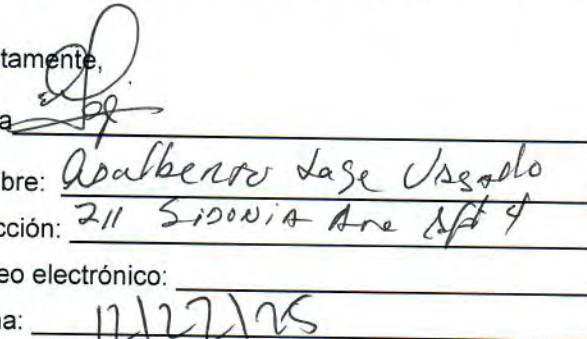 tamente,
a
bre: Adalberto Lage Usgado
cción: 211 SIDONIA Ave Apt 4
eo electrónico:
a: 12/27/25